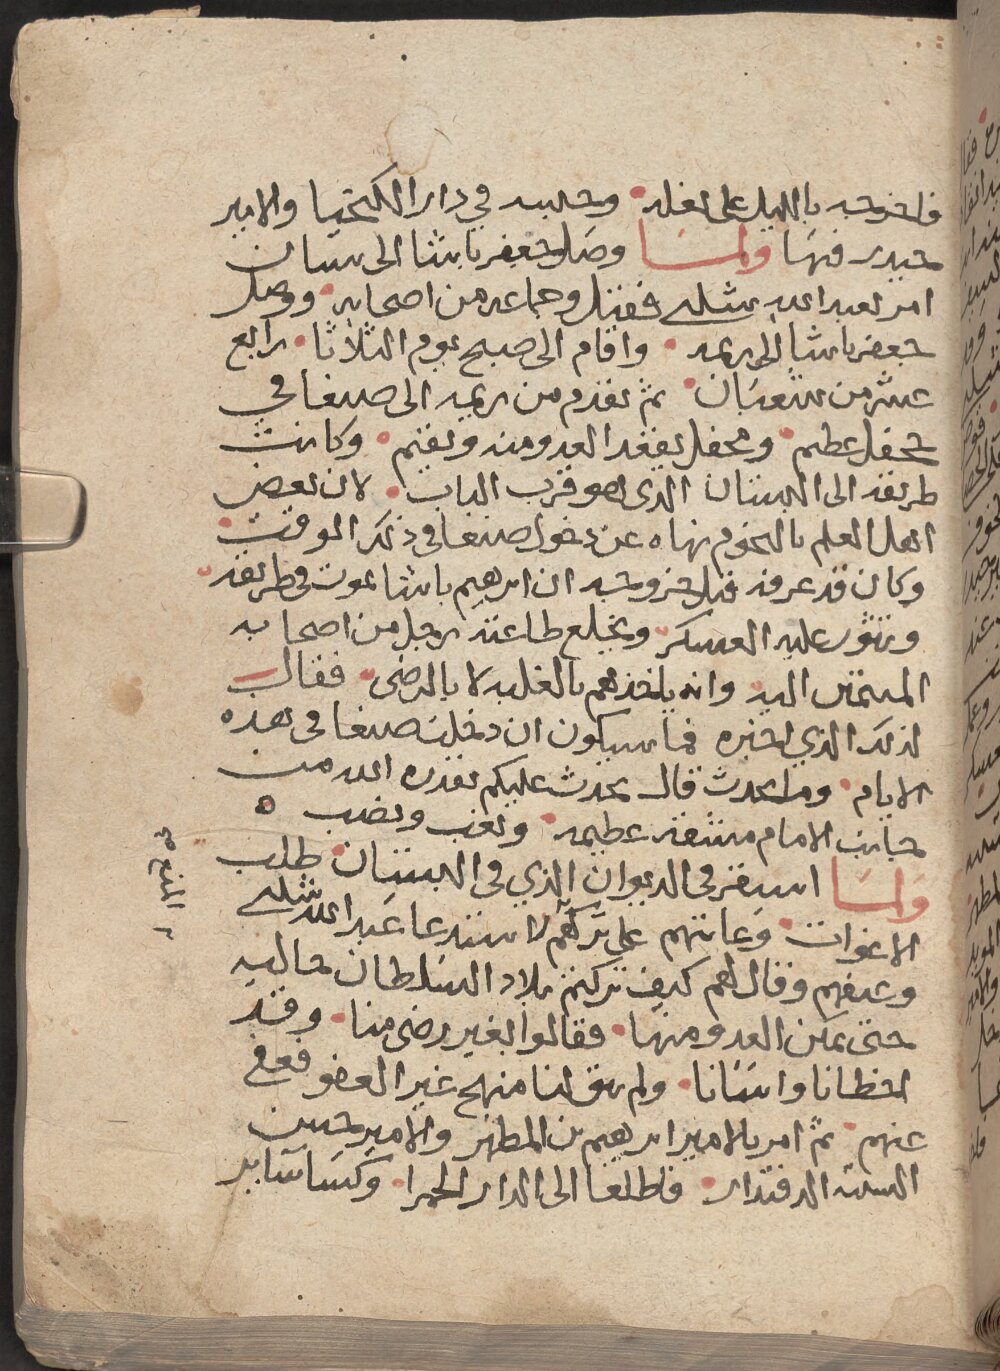 فاخرجه بالليل على بغله وحبسه في دار الكتخيا والامير
حيدر فيها ولما وصل جعفر باشا الى بستان
امر بعبد الله شلبي فقتل وجماعه من اصحابه ووصل
جعفر باشا الى ريمه واقام الى صبح يوم الثلاثا رابع
عشر من شعبان ثم تقدم من ريمه الى صنعا في
جحفل عظيم ومحفل يقعد العدو منه ويقيم وكانت
طريقه الى البستان الذي هو قرب الباب لان بعض
اهل العلم بالنجوم نهاه عن دخول صنعا في ذلك الوقت
وكان قد عرفه قبل خروجه ان ابرهيم باشا يموت في طريقه
وتثور عليه العسكر ويخلع طاعته رجل من اصحابه
المنتمين اليه وانه ياخذهم بالغلبه لا بالرضى فقال
لذلك الذي اخبره فما سيكون ان دخلت صنعا في هذه
الايام وما يحدث قال يحدث عليكم بقدره الله من
جانب الامام مشقه عظيمه وتعب ونصب ه
ولما استقر في الديوان الذي في البستان طلب
الاغوات وعاتبهم على تركهم لاستدعا عبد الله شلبي
وعنفهم وقال لهم كيف تركتم بلاد السلطان خاليه
حتى تمكن العدو منها فقالوا بغير رضى منا وقد
اخطانا واسانا ولم يبق لنا منهج غير العفو فعفى
عنهم ثم امر بالامير ابرهيم بن المطهر والامير حسين
الدفتدار فاطلعا الى الدار الحمرا وكسا ساير